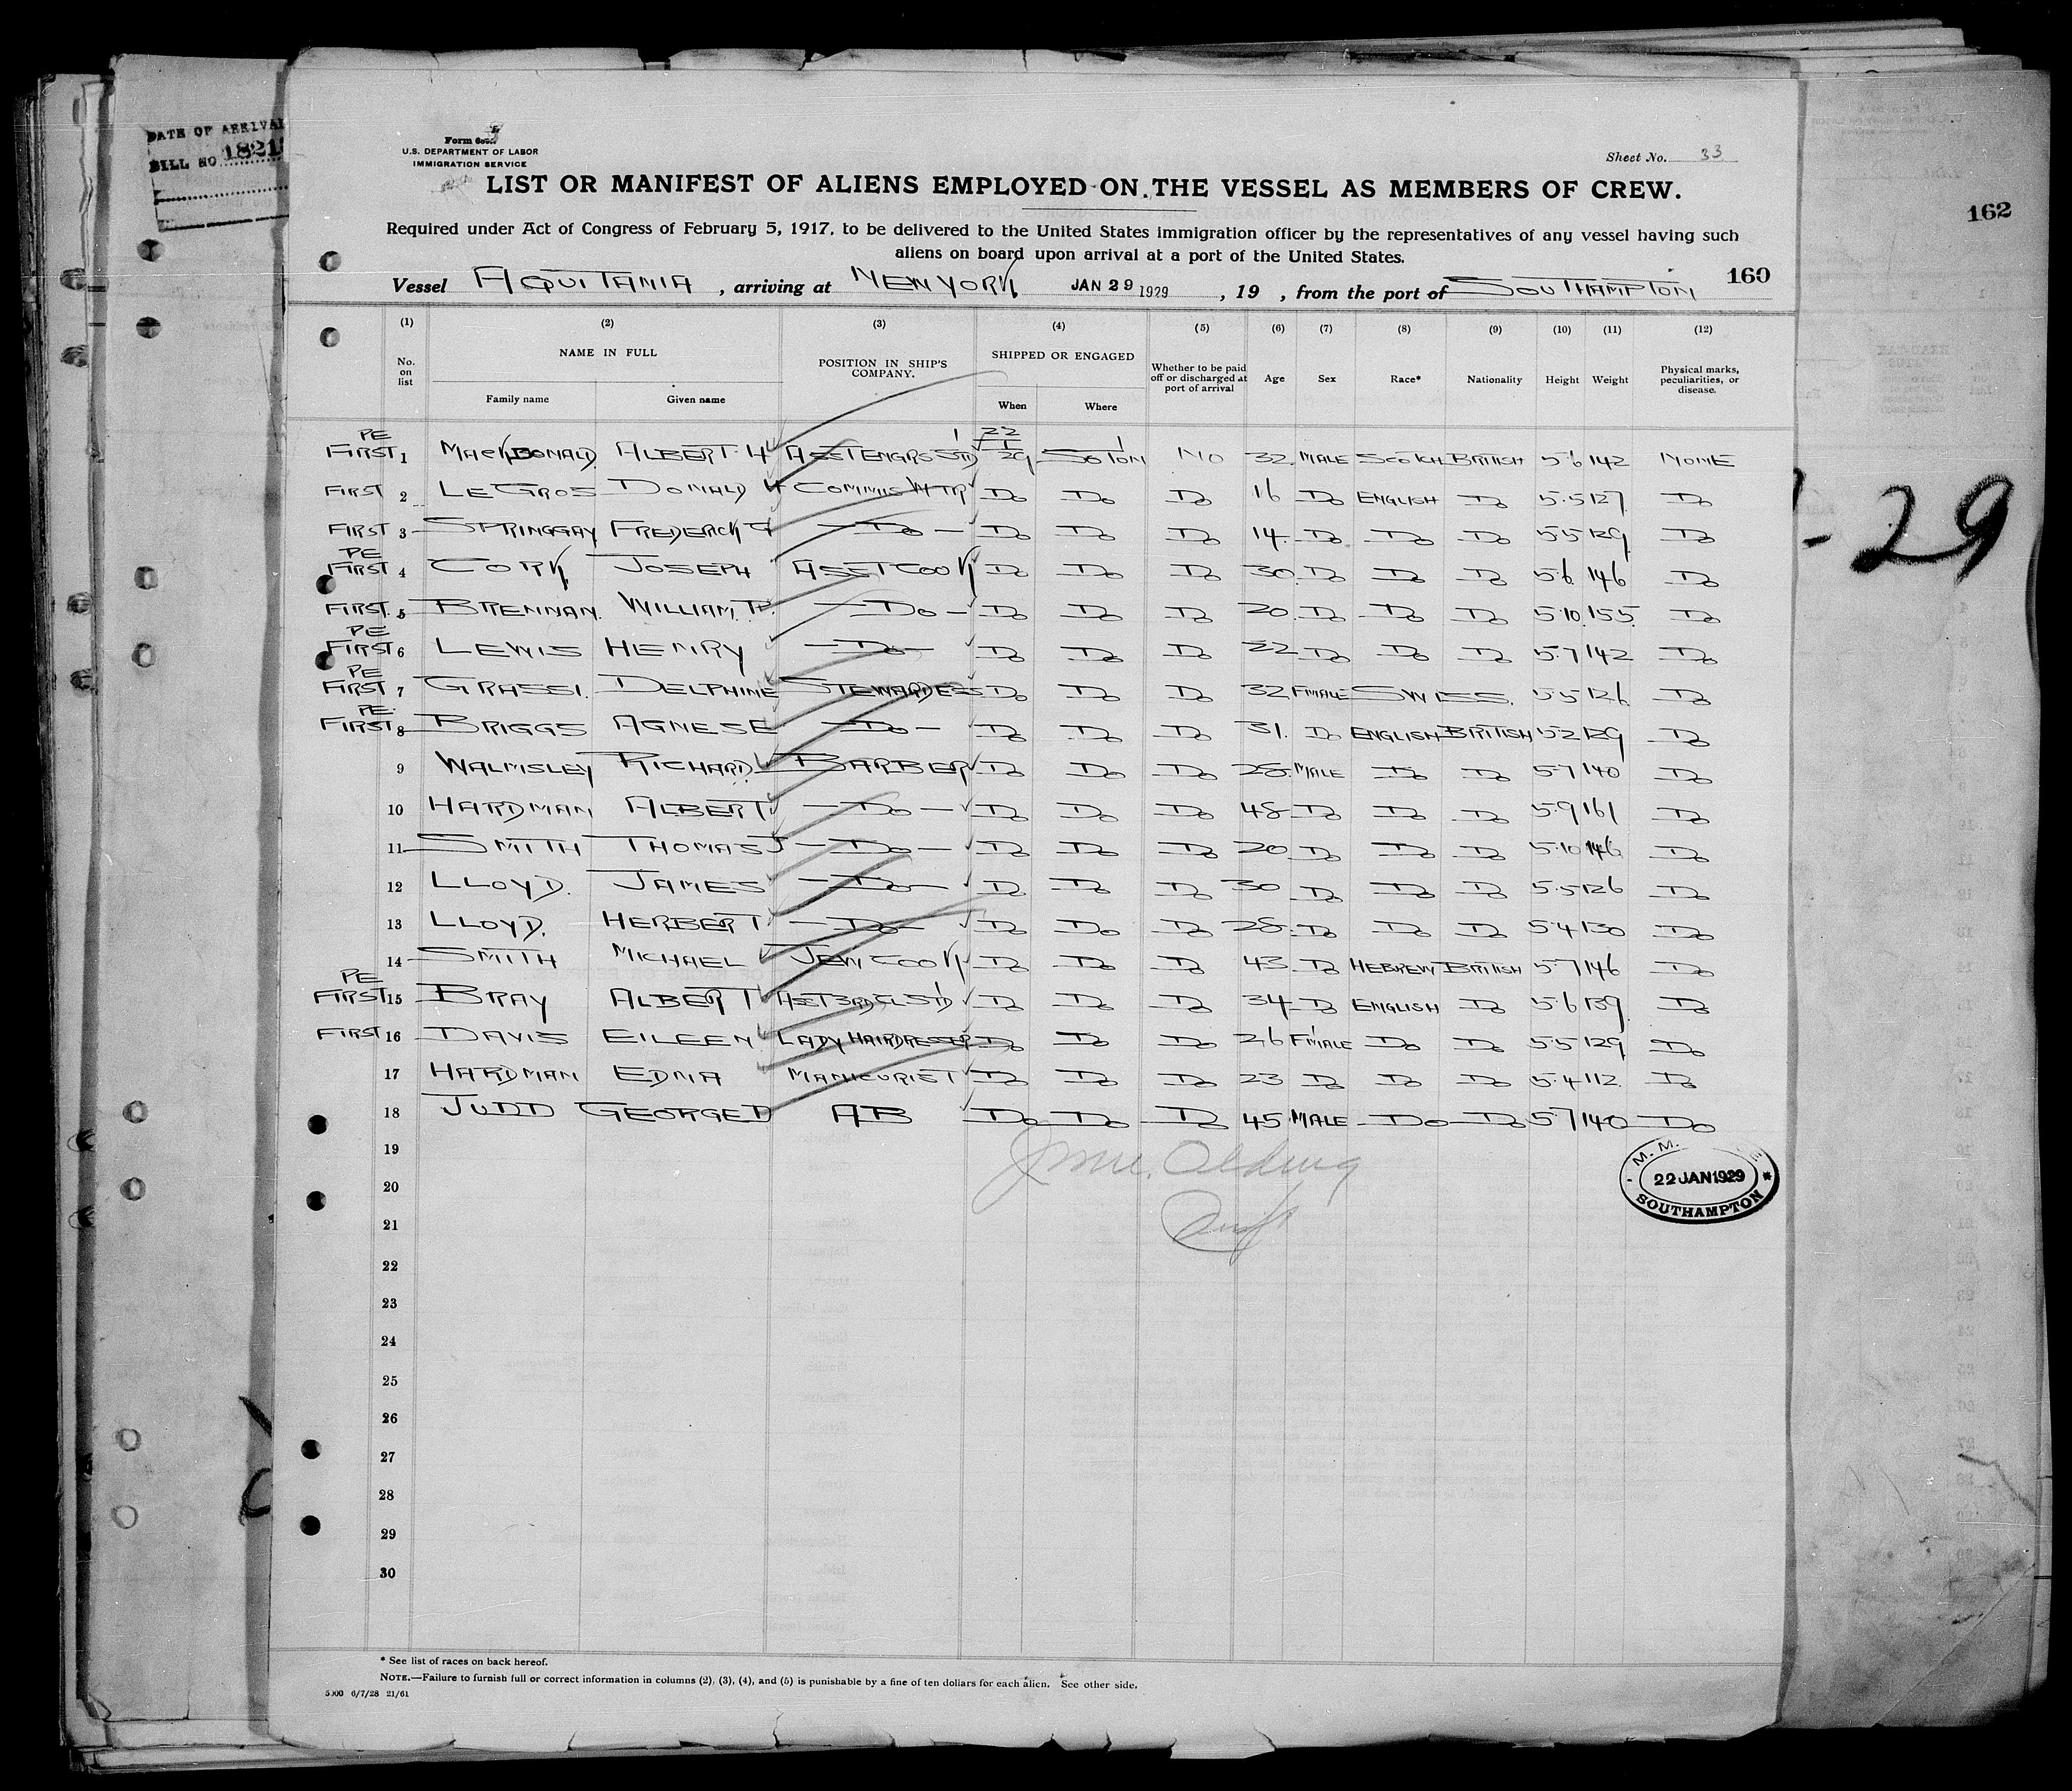 DATE OF ARRIVAL
BILL NO. 1821
U.S. DEPARTMENT OF LABOR
IMMIGRATION SERVICE
Sheet No. 33
LIST OR MANIFEST OF ALIENS EMPLOYED ON THE VESSEL AS MEMBERS OF CREW.
Required under Act of Congress of February 5, 1917, to be delivered to the United States immigration officer by the representatives of any vessel having such
aliens on board upon arrival at a port of the United States.
162
160
Vessel AQUITANIA, arriving at NEW YORK JAN 29 1929, 19 , from the port of SOUTHAMPTON
(1) (2) (3) (4) (5) (6) (7) (8) (9) (10) (11) (12)
No. on list NAME IN FULL POSITION IN SHIP'S COMPANY. SHIPPED OR ENGAGED Whether to be paid off or discharged at port of arrival Age Sex Race* Nationality Height Weight Physical marks, peculiarities, or disease.
Family name Given name When Where
PE FIRST 1 MACKDONALD ALBERT H ASST ENGRS STD 22/1/29 SOTON NO 32 MALE SCOTCH BRITISH 5.6 142 NONE
FIRST 2 LE GROS DONALD H COMMIS WTR DO DO DO 16 DO ENGLISH DO 5.5 127 DO
FIRST 3 SPRINGGAY FREDERICK G DO DO DO DO 14 DO DO DO 5.5 129 DO
PE FIRST 4 CORK JOSEPH ASST COOK DO DO DO 30 DO DO DO 5.6 146 DO
FIRST 5 BRENNAN WILLIAM P. DO DO DO DO 20 DO DO DO 5.10 155 DO
PE FIRST 6 LEWIS HENRY DO DO DO DO 22 DO DO DO 5.7 142 DO
PE FIRST 7 GRASSI DELPHINE STEWARDESS DO DO DO 32 FMALE SWISS. 5.5 126 DO
PE FIRST 8 BRIGGS AGNES E DO DO DO DO 31 DO ENGLISH BRITISH 5.2 129 DO
9 WALMSLEY RICHARD BARBER DO DO DO 28 MALE DO DO 5.7 140 DO
10 HARDMAN ALBERT DO DO DO DO 48 DO DO DO 5.9 161 DO
11 SMITH THOMAS J DO DO DO DO 20 DO DO DO 5.10 146 DO
12 LLOYD. JAMES DO DO DO DO 30 DO DO DO 5.5 126 DO
13 LLOYD. HERBERT DO DO DO DO 28 DO DO DO 5.4 130 DO
14 SMITH MICHAEL JEW COOK DO DO DO 43 DO HEBREW BRITISH 5.7 146 DO
PE FIRST 15 BRAY ALBERT ASST 3RD CL STD DO DO DO 34 DO ENGLISH DO 5.6 139 DO
FIRST 16 DAVIS EILEEN LADY HAIRDRESSER DO DO DO 26 FMALE DO DO 5.5 129 DO
17 HARDMAN EDNA MANICURIST DO DO DO 23 DO DO DO 5.4 112 DO
18 JUDD GEORGE D AB DO DO DO 45 MALE DO DO 5.7 140 DO
19
20
21
22
23
24
25
26
27
28
29
30
M. M.
22 JAN 1929
SOUTHAMPTON
-29
* See list of races on back hereof.
NOTE.—Failure to furnish full or correct information in columns (2), (3), (4), and (5) is punishable by a fine of ten dollars for each alien. See other side.
5000 6/7/28 21/61